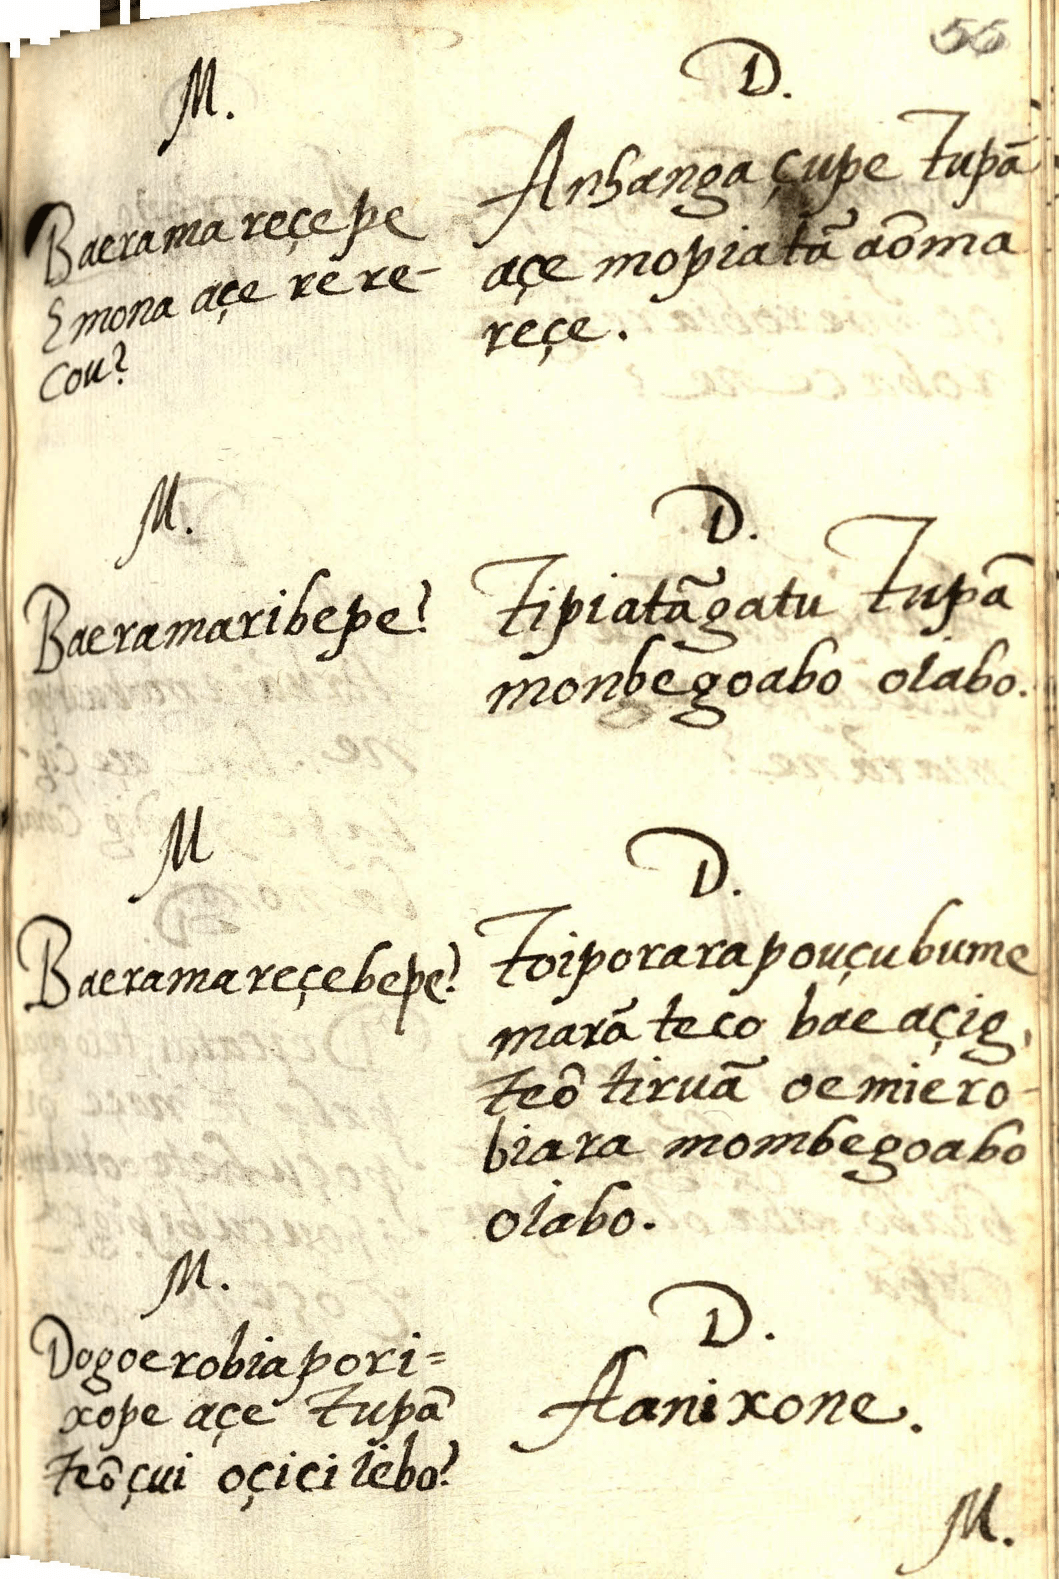 55
M.
Baerama reçepe
Emona açe rere-
cou?
D.
Anhanga çupe Tupã
açe mopiatã aõma
reçe.
M.
Baeramaribepe?
D.
Tipiatãgatu Tupã
monbegoabo oiabo.
M
Baeramareçebepe?
D.
Toiporarapouçubume
marã teco bae açig,
teõ tiruã oemiero-
biara mombegoabo
oiabo.
M.
Dogoerobiapori=
xope açe Tupã
teõçui oçiciiebo?
D.
Aanixone.
M.